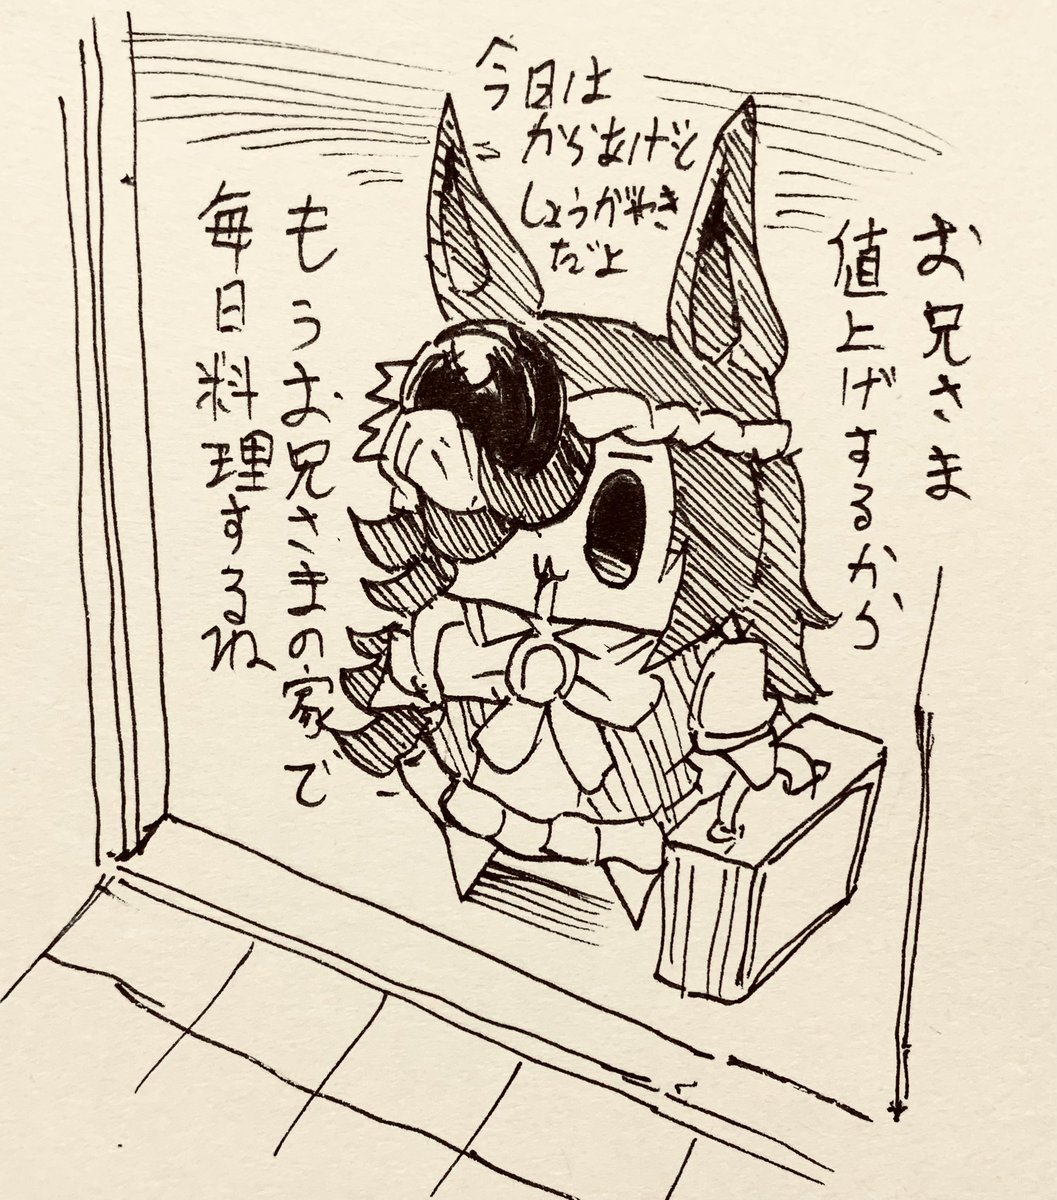 お兄さま
値上げするから
もうお兄さまの家で
毎日料理するね
今日は
からあげと
しょうがやき
だよ